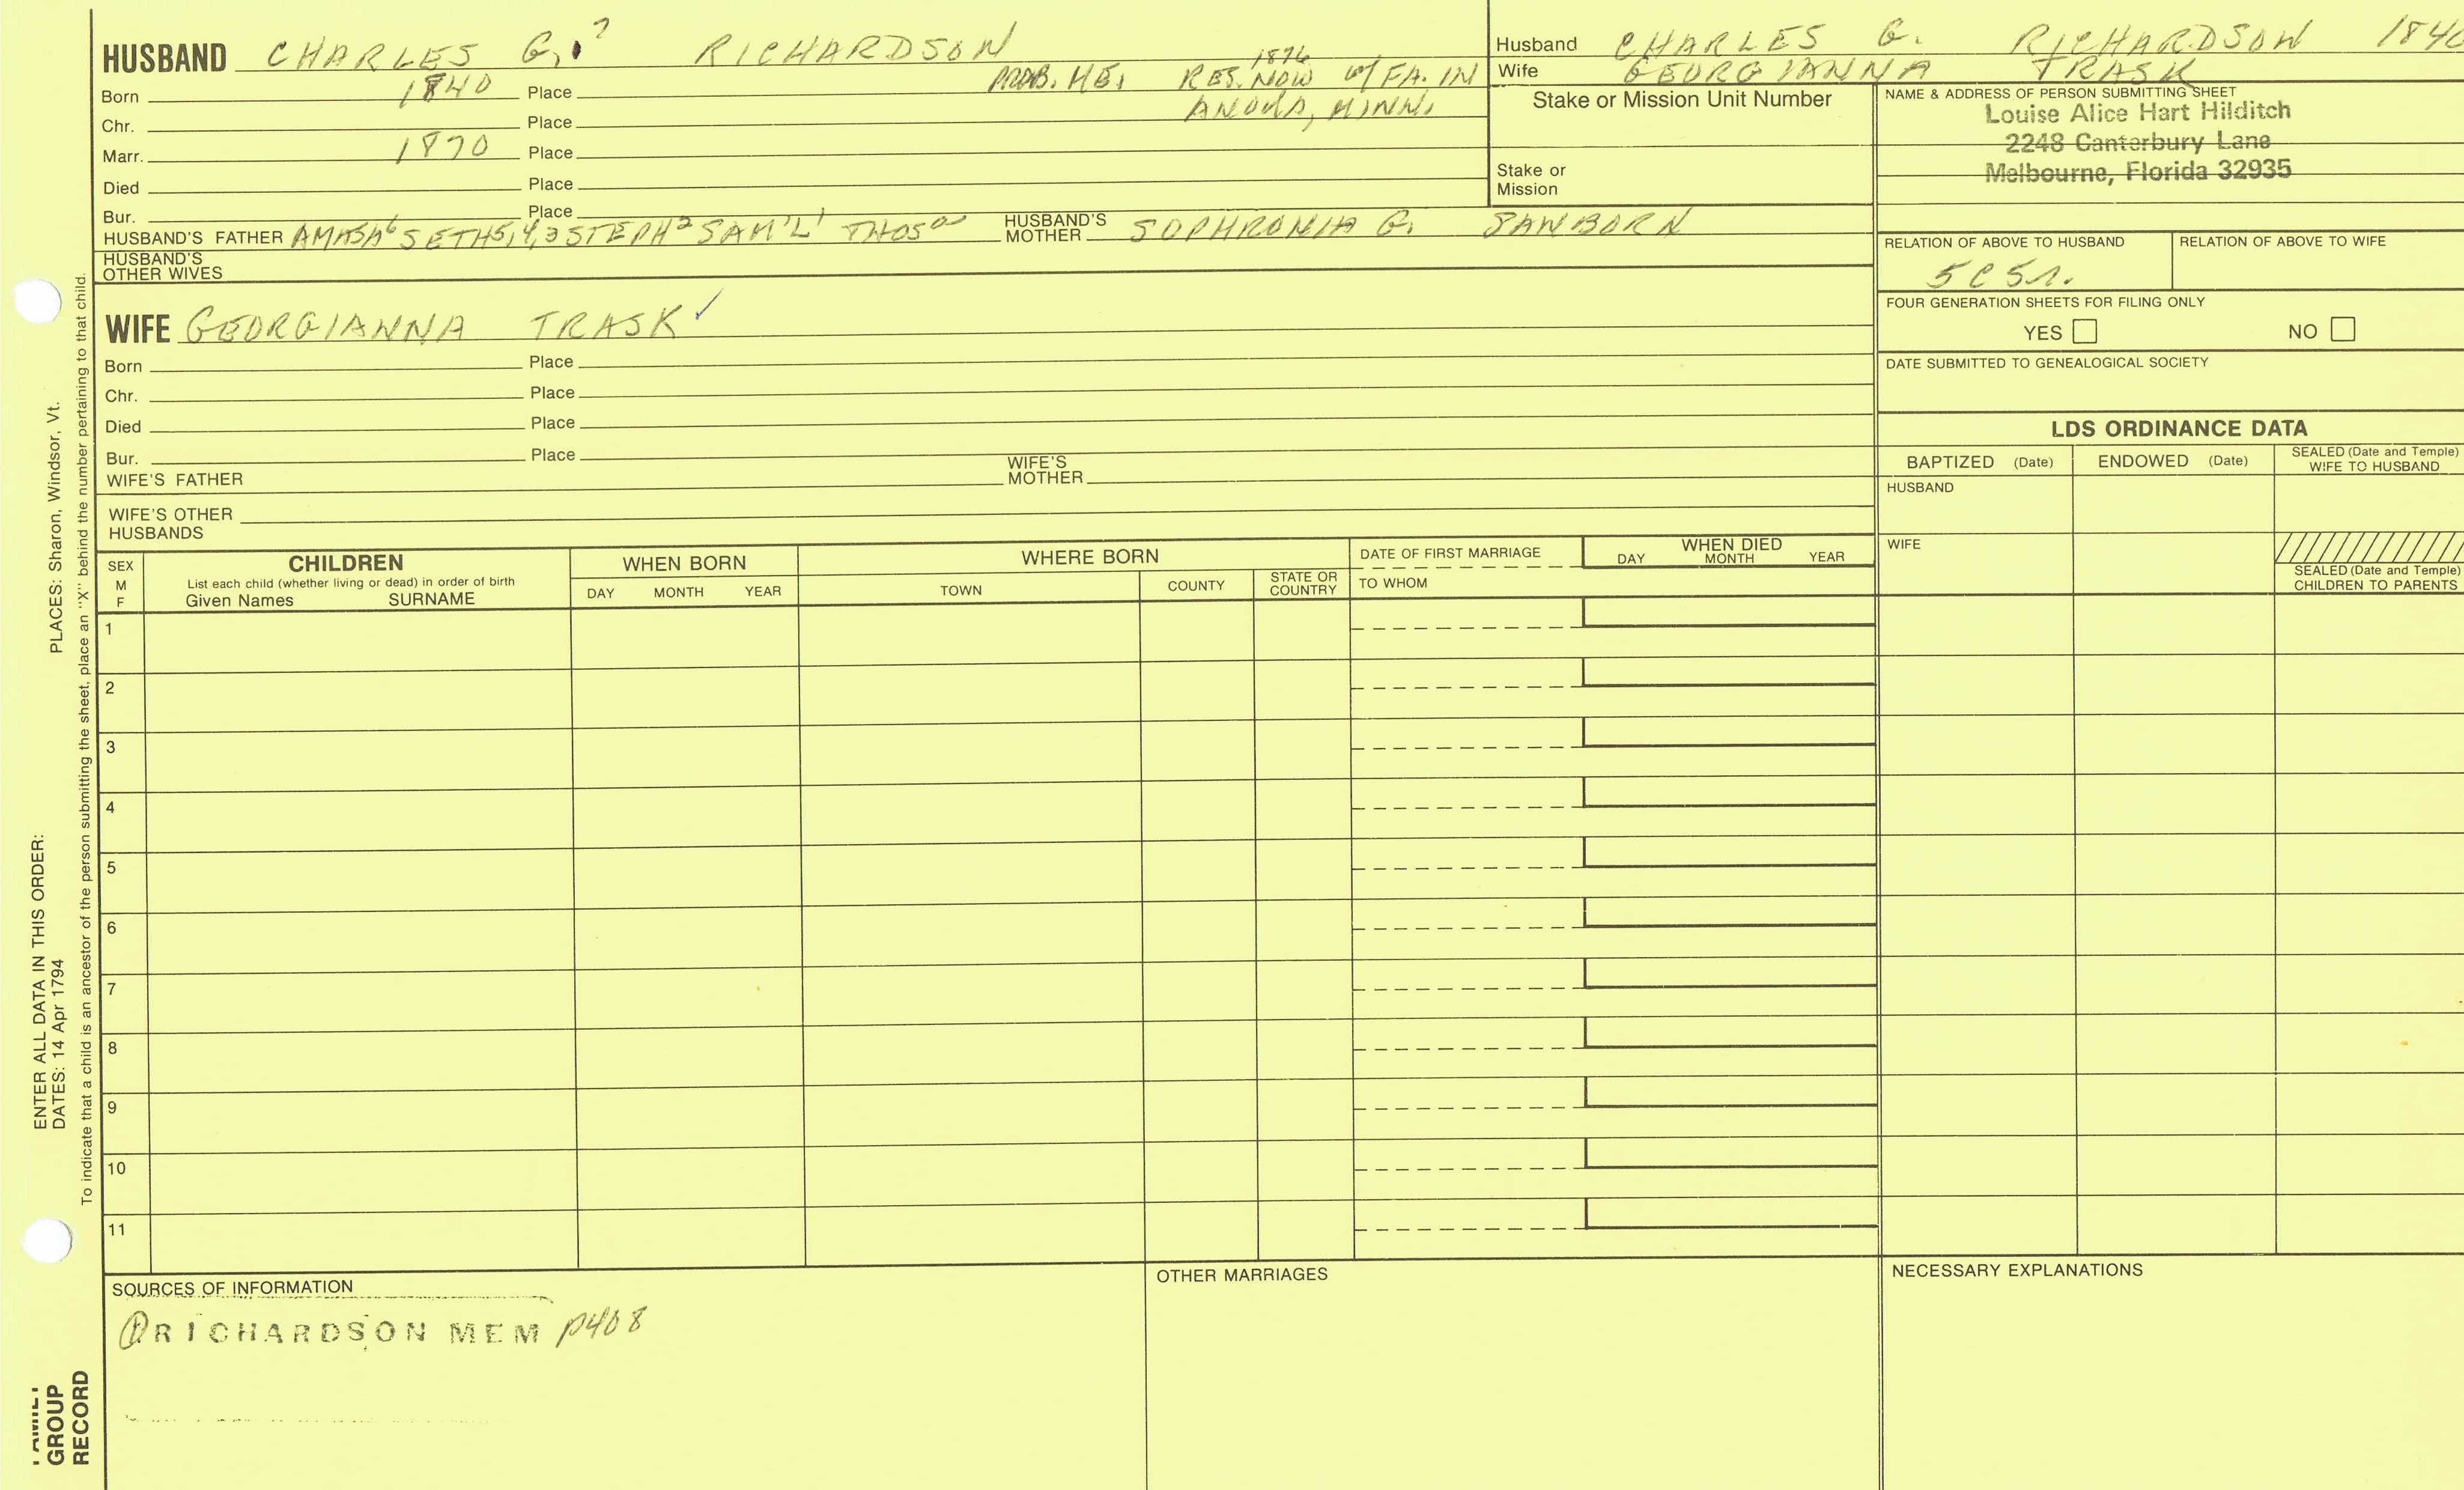 HUSBAND CHARLES G.? RICHARDSON
Born 1840 Place PROB. ME. RES. NOW 1876 w/ FA. IN
ANOKA, MINN.
Chr. Place
Marr. 1870 Place
Died Place
Bur. Place
HUSBAND'S FATHER AMASA6 SETH5,4,3 STEPH2 SAM'L1 THOSa HUSBAND'S MOTHER SOPHRONIA G. SANBORN
HUSBAND'S
OTHER WIVES
WIFE GEORGIANNA TRASK ✓
Born Place
Chr. Place
Died Place
Bur. Place
WIFE'S FATHER WIFE'S MOTHER
WIFE'S OTHER
HUSBANDS
Husband CHARLES G. RICHARDSON 1840
Wife GEORGIANNA TRASK
Stake or Mission Unit Number
Stake or
Mission
NAME & ADDRESS OF PERSON SUBMITTING SHEET
Louise Alice Hart Hilditch
2248 Canterbury Lane
Melbourne, Florida 32935
RELATION OF ABOVE TO HUSBAND RELATION OF ABOVE TO WIFE
5C5r.
FOUR GENERATION SHEETS FOR FILING ONLY
YES NO
DATE SUBMITTED TO GENEALOGICAL SOCIETY
LDS ORDINANCE DATA
BAPTIZED (Date) ENDOWED (Date) SEALED (Date and Temple)
WIFE TO HUSBAND
HUSBAND
WIFE
SEALED (Date and Temple)
CHILDREN TO PARENTS
SEX
M
F
CHILDREN
List each child (whether living or dead) in order of birth
Given Names SURNAME
WHEN BORN
DAY MONTH YEAR
WHERE BORN
TOWN COUNTY STATE OR COUNTRY
DATE OF FIRST MARRIAGE
TO WHOM
WHEN DIED
DAY MONTH YEAR
1
2
3
4
5
6
7
8
9
10
11
SOURCES OF INFORMATION
① RICHARDSON MEM p408
OTHER MARRIAGES
NECESSARY EXPLANATIONS
ENTER ALL DATA IN THIS ORDER:
DATES: 14 Apr 1794 PLACES: Sharon, Windsor, Vt.
To indicate that a child is an ancestor of the person submitting the sheet, place an "X" behind the number pertaining to that child.
FAMILY
GROUP
RECORD